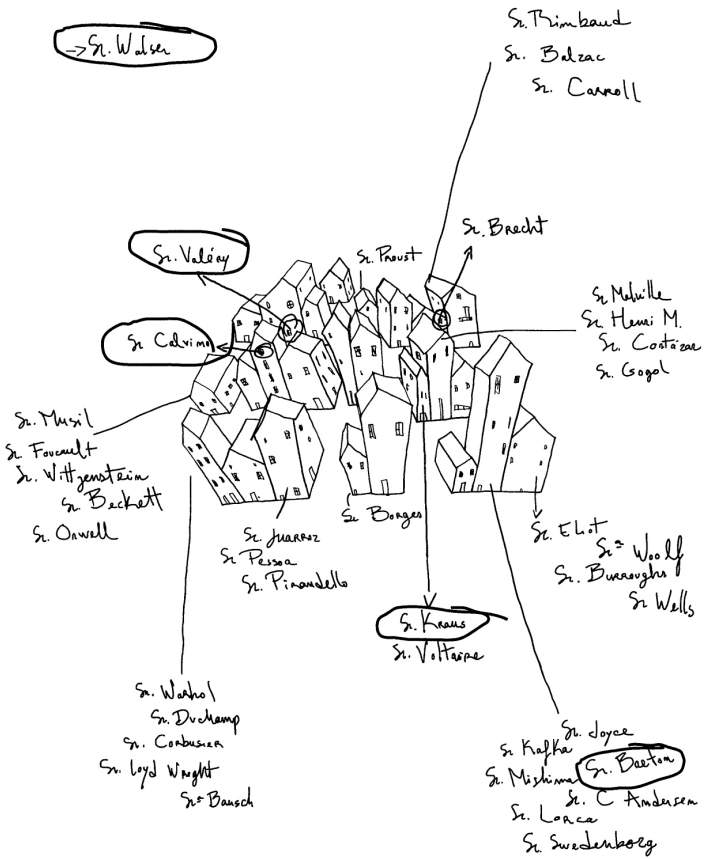 → Sr. Walser
Sr. Rimbaud
Sr. Balzac
Sr. Carroll
Sr. Brecht
Sr. Valéry
Sr. Proust
Sr. Calvino
Sr. Melville
Sr. Henri M.
Sr. Cortázar
Sr. Gogol
Sr. Musil
Sr. Foucault
Sr. Wittgenstein
Sr. Beckett
Sr. Orwell
Sr. Juarroz
Sr. Pessoa
Sr. Pirandello
Sr. Borges
Sr. Eliot
Sr.ª Woolf
Sr. Burroughs
Sr. Wells
Sr. Kraus
Sr. Voltaire
Sr. Warhol
Sr. Duchamp
Sr. Corbusier
Sr. Loyd Wright
Sr.ª Bausch
Sr. Joyce
Sr. Kafka
Sr. Breton
Sr. Mishima
Sr. C Andersen
Sr. Lorca
Sr. Swedenborg